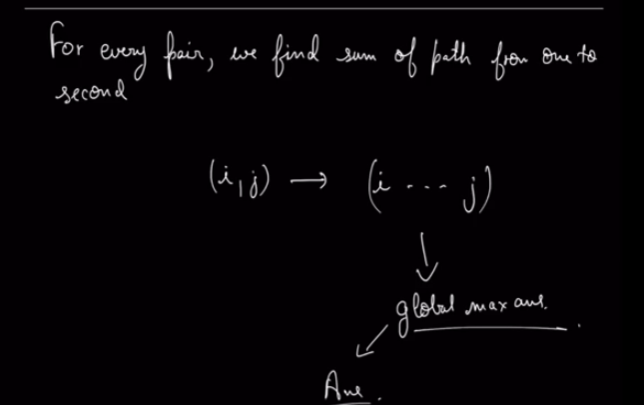 For every pair, we find sum of path from one to
second
(i,j) → (i --- j)
global max ans.
Ans.